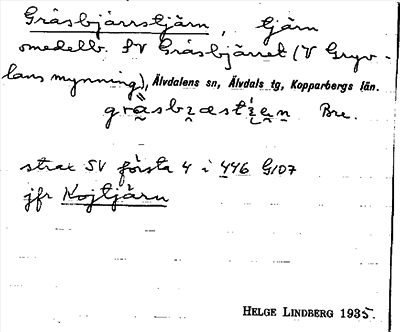 Gråsbjärrstjärn, tjärn
omedelb. SV Gråsbjärret (V Gryv-
lans mynning), Älvdalens sn, Älvdals tg, Kopparbergs län.
Bre.
strax SV första 4 i 446 G1D7
jfr Kojtjärn
HELGE LINDBERG 1935.